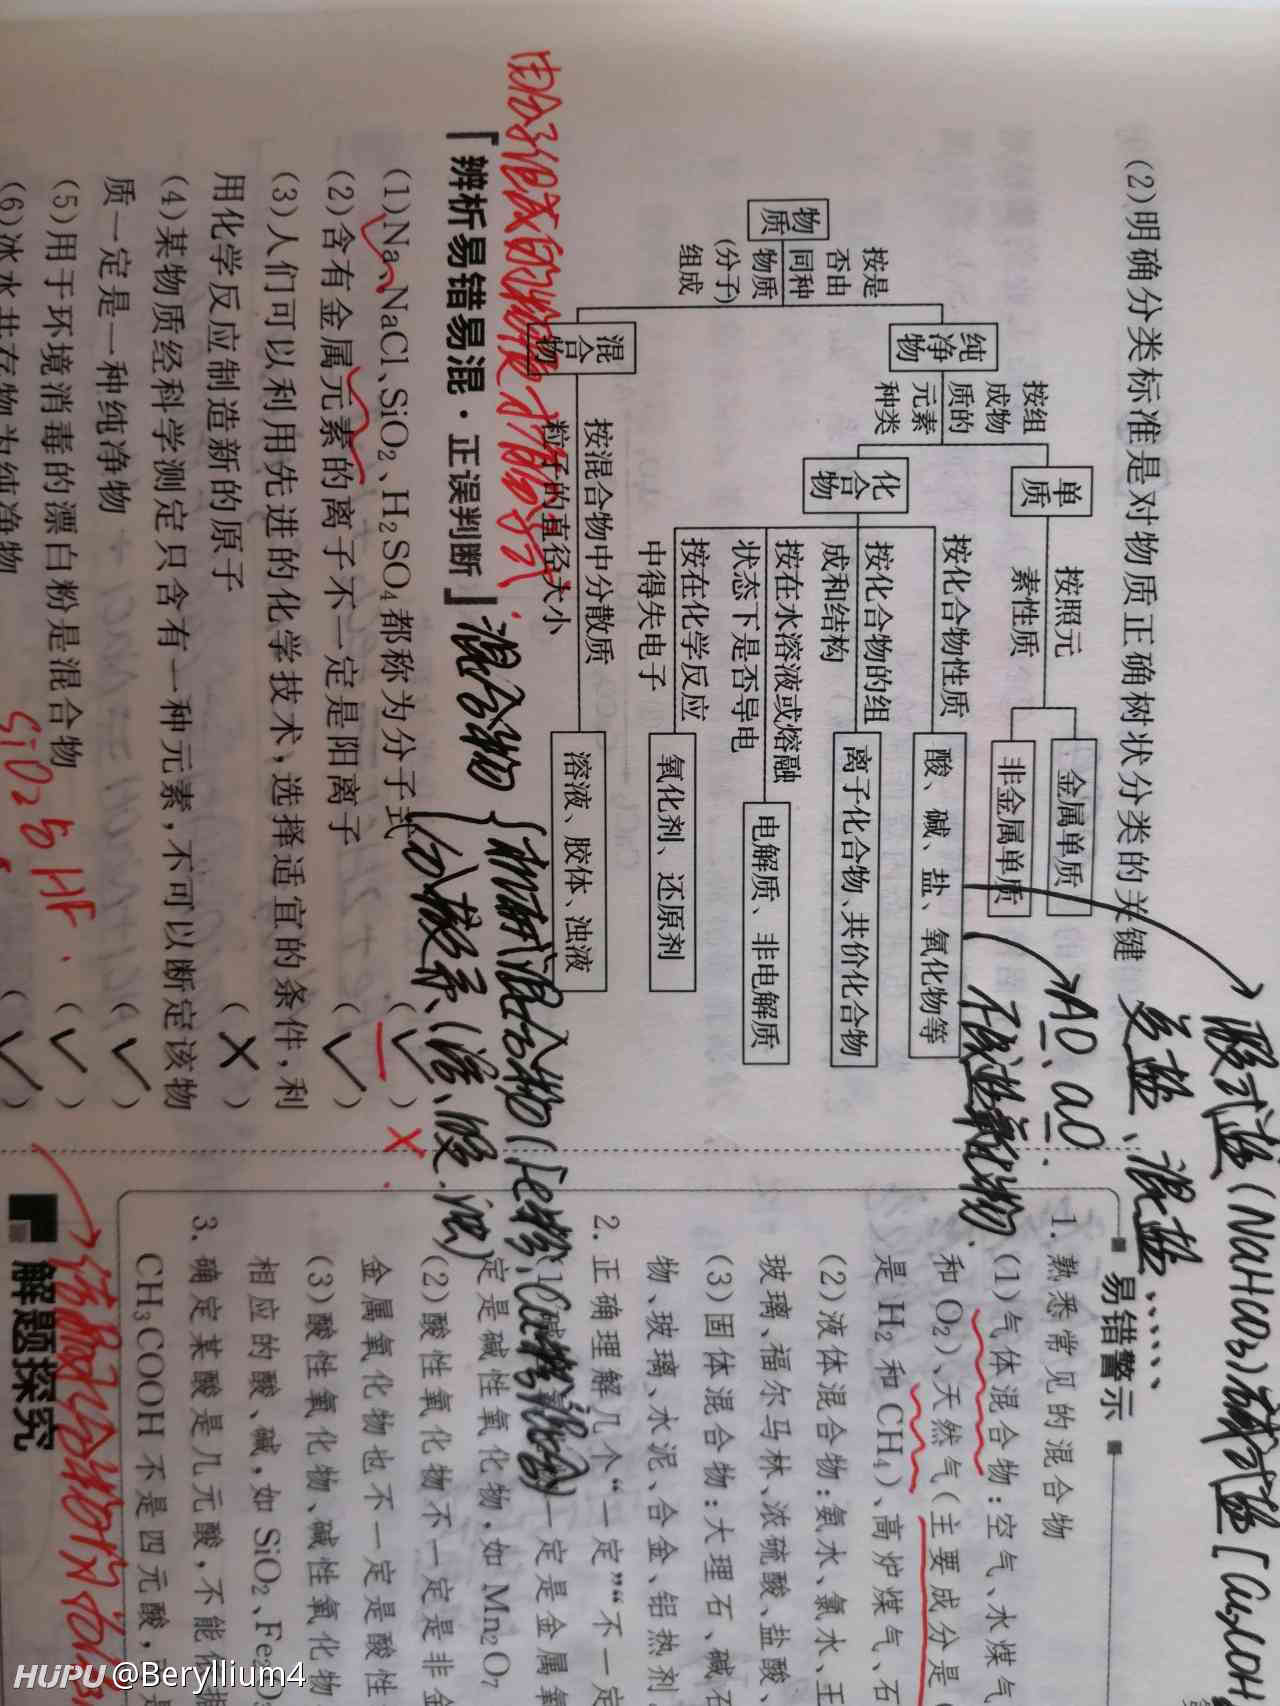 (2)明确分类标准是对物质正确树状分类的关键
物质
按是
否由
同种
物质
(分子)
组成
纯净物
混合物
按组
成物
质的
元素
种类
单质
化合物
按照元
素性质
金属单质
非金属单质
按化合物性质
酸、碱、盐、氧化物等
按化合物的组
成和结构
离子化合物、共价化合物
按在水溶液或熔融
状态下是否导电
电解质、非电解质
按在化学反应
中得失电子
氧化剂、还原剂
按混合物中分散质
粒子的直径大小
溶液、胶体、浊液
酸式盐(NaHCO3)碱式盐
复盐、混盐……
AO、aO
不成盐氧化物
由分子组成的物质才有分子式.
「辨析易错易混·正误判断」
混合物
机械混合物
分散系(溶、胶、浊)
(1)Na、NaCl、SiO₂、H₂SO₄都称为分子式 (✓) ×
(2)含有金属元素的离子不一定是阳离子 (✓)
(3)人们可以利用先进的化学技术,选择适宜的条件,利
用化学反应制造新的原子 (×)
(4)某物质经科学测定只含有一种元素,不可以断定该物
质一定是一种纯净物 (✓)
(5)用于环境消毒的漂白粉是混合物 (✓)
(6)冰水共存物为纯净物 (✓)
SiO2与HF.
易错警示
1. 熟悉常见的混合物
(1)气体混合物:空气、水煤气
和 O₂)、天然气(主要成分是
是 H₂ 和 CH₄)、高炉煤气、石
(2)液体混合物:氨水、氯水、王
玻璃、福尔马林、浓硫酸、盐酸、
(3)固体混合物:大理石、碱石
物、玻璃、水泥、合金、铝热剂
2. 正确理解几个“一定”“不一定
一定是金属氧
定是碱性氧化物,如 Mn₂O₇
(2)酸性氧化物不一定是非金
金属氧化物也不一定是酸性
(3)酸性氧化物、碱性氧化物
相应的酸、碱,如 SiO₂、Fe₂O₃
3. 确定某酸是几元酸,不能依据
CH₃COOH 不是四元酸,
解题探究
HUPU @Beryllium4